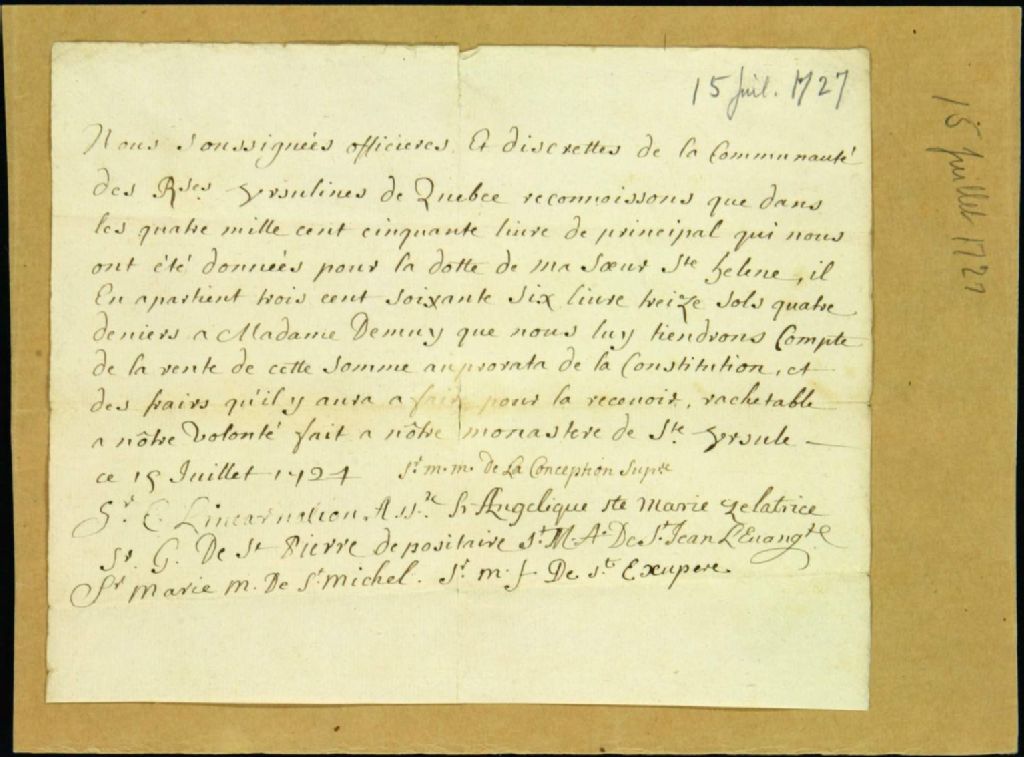 15 Juil. 1727
Nous Soussignées officieres Et discrettes de la Communauté
des Rses. Ursulines de Quebec reconnoissons que dans
les quatre mille cent cinquante livre de principal qui nous
ont été données pour la dotte de ma Sœur Ste helene, il
En apartient trois cent soixante six livre treize sols quatre
deniers a Madame Demuy que nous luy tiendrons Compte
de la rente de cette somme auprorata de la Constitution, et
des frairs qu'il y aura a faire pour la recevoir, rachetable
a nôtre Volonté fait a nôtre monastere de Ste. Ursule —
ce 15 Juillet Sr. m. m. De La Conception Supre
Sr. C. Lincarnation Asste Sr Angelique ste Marie zelatrice
Sr. G. De St Pierre depositaire Sr. M. A. De St. Jean L'Evangte
Sr Marie m. De St michel. Sr. m. f. De st Exupere.
15 juillet 1727